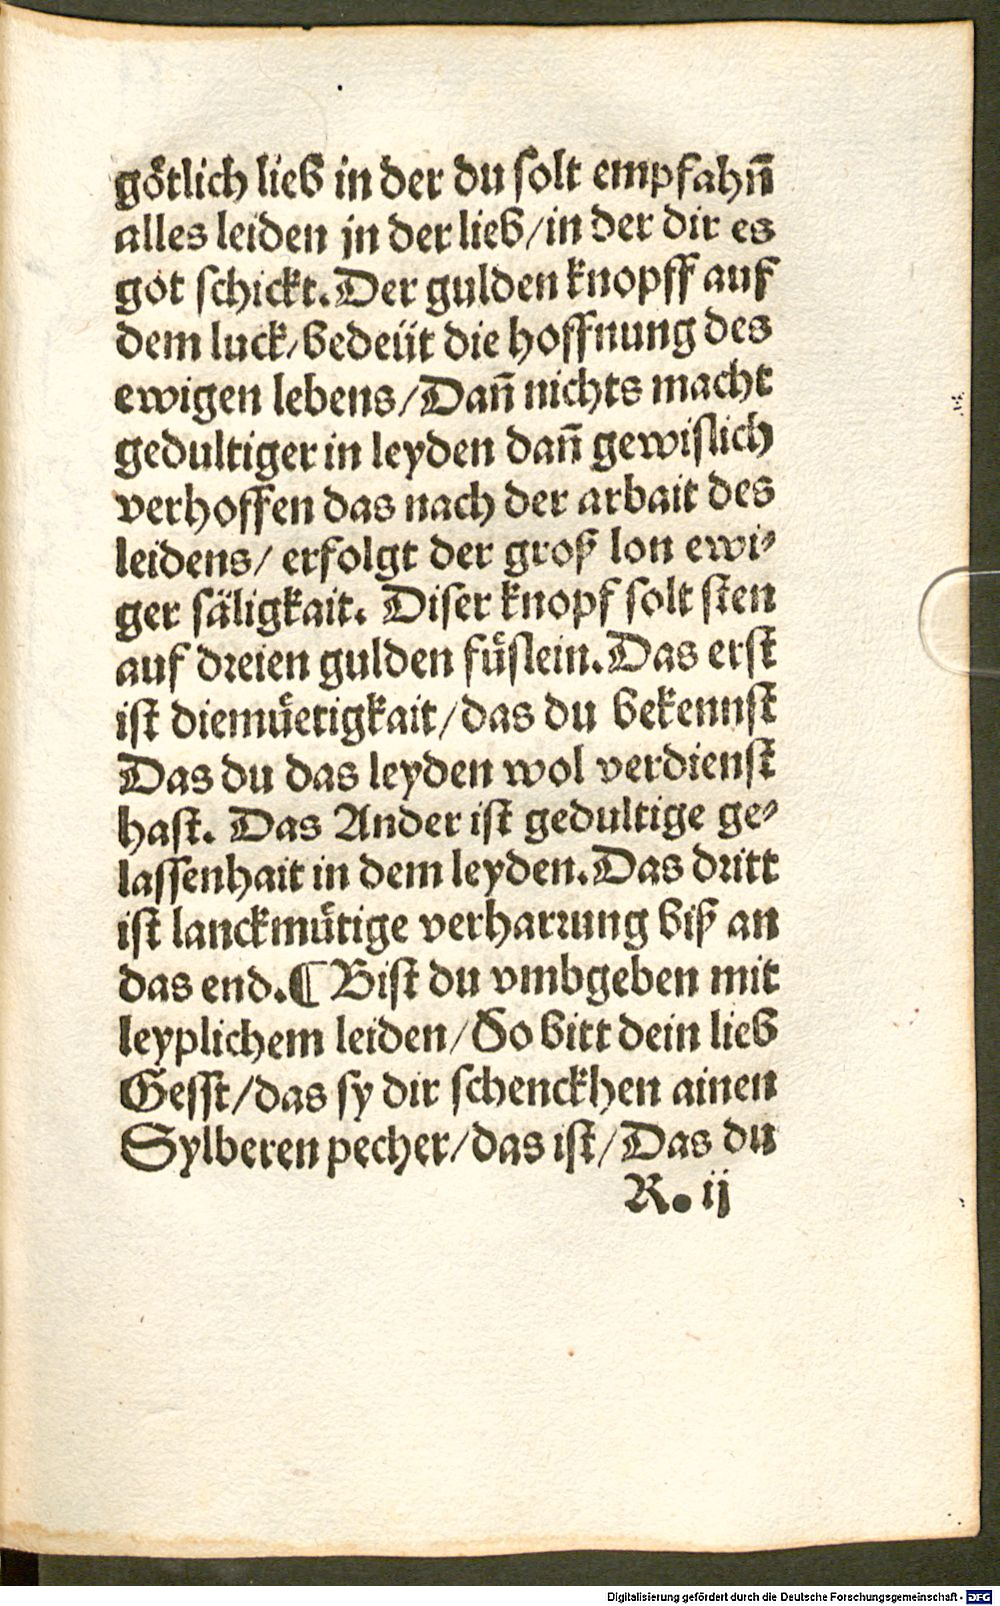 götlich lieb in der du solt empfahn̄
alles leiden jn der lieb/in der dir es
got schickt. Der gulden knopff auf
dem luck/bedeüt die hoffnung des
ewigen lebens/Dan̄ nichts macht
gedultiger in leyden dan̄ gewislich
verhoffen das nach der arbait des
leidens/ erfolgt der groß lon ewi-
ger säligkait. Diser knopf solt sten
auf dreien gulden füslein. Das erst
ist diemüetigkait/das du bekennst
Das du das leyden wol verdienst
hast. Das Ander ist gedultige ge-
lassenhait in dem leyden. Das dritt
ist lanckmütige verharrung biß an
das end. ¶ Bist du vmbgeben mit
leyplichem leiden/So bitt dein lieb
Gesst/das sy dir schenckhen ainen
Sylberen pecher/das ist/Das du
R. ij
Digitalisierung gefördert durch die Deutsche Forschungsgemeinschaft - DFG